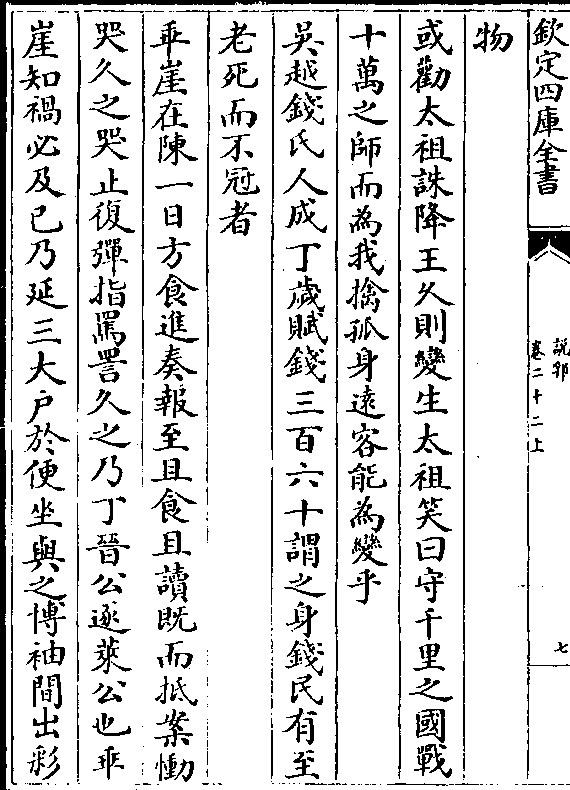 欽定四庫全書
說郛
卷二十二上
七
物
或勸太祖誅降王久則變生太祖笑曰守千里之國戰
十萬之師而為我擒孤身遠客能為變乎
吳越錢氏人成丁歲賦錢三百六十謂之身錢民有至
老死而不冠者
乖崖在陳一日方食進奏報至且食且讀既而抵案慟
哭久之哭止復彈指罵詈久之乃丁晉公逐萊公也乖
崖知禍必及已乃延三大户於便坐與之博袖間出彩